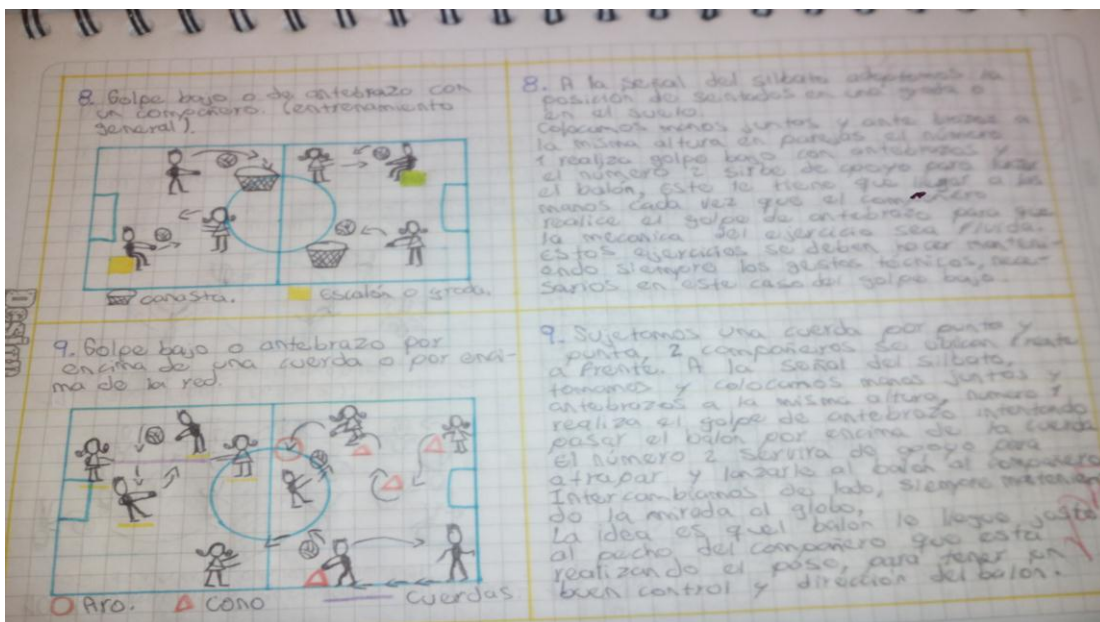 8. Golpe bajo o de antebrazo con
un compañero. (entrenamiento
general).
canasta.
Escalón o grada.
8. A la señal del silbato adoptamos la
posición de sentados en una grada o
en el suelo.
Colocamos manos juntas y ante brazos a
la misma altura en parejas el número
1 realiza golpe bajo con antebrazos y
el número 2 sirbe de apoyo para
el balón, este le tiene que llegar a las
manos cada vez que el compañero
realice el golpe de antebrazo para que
la mecanica del ejercicio sea fluida.
Estos ejercicios se deben hacer manteni-
endo siempre los gestos técnicos, nece-
sarios en este caso del golpe bajo.
Design
9. Golpe bajo o antebrazo por
encima de una cuerda o por enci-
ma de la red.
Aro.
cono
cuerdas
9. Sujetamos una cuerda por punta y
punta, 2 compañeros se ubican frente
a frente. A la señal del silbato,
tomamos y colocamos manos juntas y
antebrazos a la misma altura, numero 1
realiza el golpe de antebrazo intentando
pasar el balón por encima de la cuerda
El número 2 servira de apoyo para
atrapar y lanzarle al balon al compañero
Intercambiamos de lado, siempre
do la mirada al globo,
La idea es quel balón le llegue justo
al pecho del compañero que está
realizando el pase, para tener un
buen control y dirección del balón.